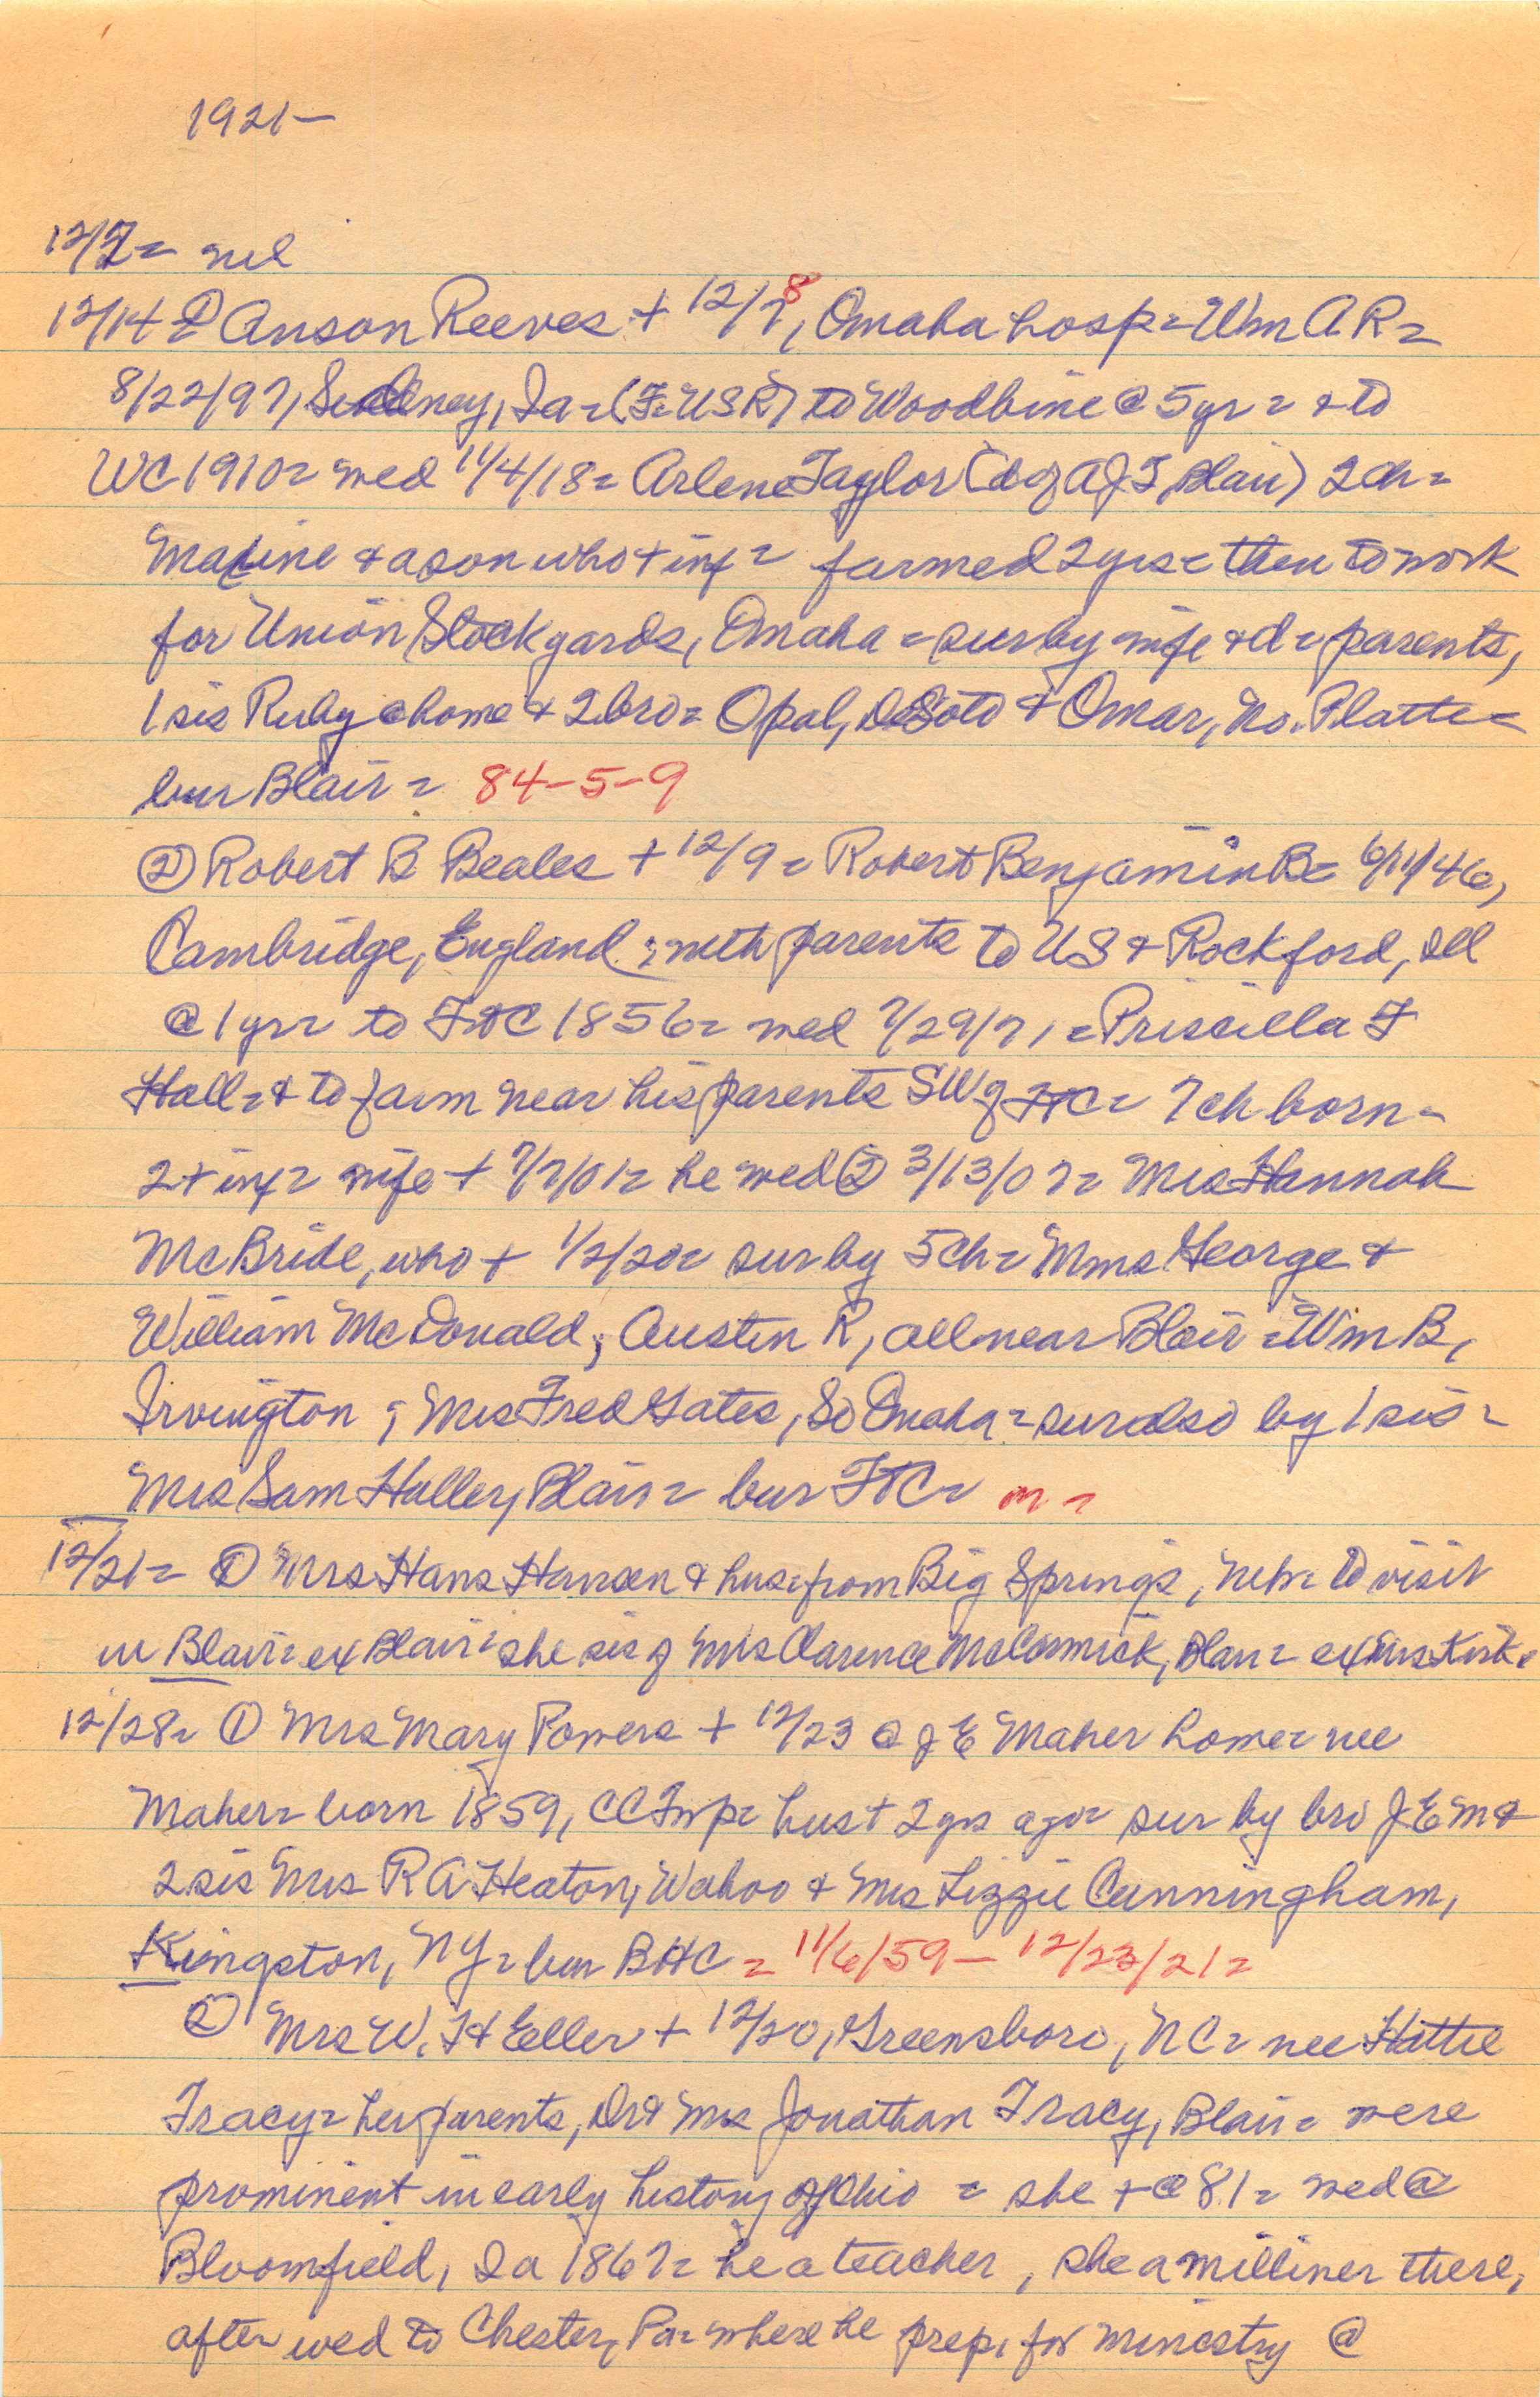 1921—
12/7= nil
12/14 ① Anson Reeves + 12/7, 8 Omaha hosp= Wm A R=
8/22/97, Sidney, Ia= (F= US R) to Woodbine @ 5yr= & to
WC 1910= wed 11/4/18= Arlene Taylor (d of A J T, Blair) 2 ch=
Maxine & a son who + inf= farmed 2 yrs= then to work
for Union Stockyards, Omaha = sur by wife & d= parents,
1 sis Ruby @ home & 2 bro= Opal, DeSoto & Omar, No. Platte=
bur Blair= 84-5-9
② Robert B Beales + 12/9= Robert Benjamin B= 6/11/46,
Cambridge, England; with parents to US & Rockford, Ill
@ 1 yr= to FtC 1856= wed 7/29/71= Priscilla F
Hall= & to farm near his parents SW of FtC= 7 ch born-
2 + inf= wife + 7/7/01= he wed ② 3/13/07= Mrs Hannah
McBride, who + 1/2/20= sur by 5 ch= Mmes George &
William McDonald; Austin R, all near Blair= Wm B,
Irvington; Mrs Fred Gates, So Omaha= sur also by 1 sis=
Mrs Sam Haller, Blair= bur FtC= m=
12/21= ① Mrs Hans Hansen & hus= from Big Springs, Neb= to visit
in Blair= ex Blair= she sis of Mrs Clarence McCormick, Blair= ex Mrs Kirk.
12/28= ① Mrs Mary Powers + 12/23 @ J E Maher home= nee
Maher= born 1859, CC Twp= hus + 2 yrs ago= sur by bro J E M &
2 sis Mrs R A Heaton, Wahoo & Mrs Lizzie Cunningham,
Kingston, NY= bur BHC= 11/6/59 — 12/23/21=
② Mrs W. H Eller + 12/20, Greensboro, NC= nee Hattie
Tracy= her parents, Dr & Mrs Jonathan Tracy, Blair= were
prominent in early history of Ohio = she + @ 81= wed @
Bloomfield, Ia 1867= he a teacher, she a milliner there,
after wed to Chester, Pa= where he prep. for ministry @